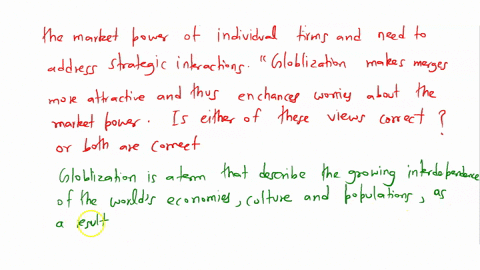 the market power of individual firms and need to
address strategic interactions. "Globlization makes merges
more attractive and thus enchances worriy about the
market power. Is either of these views correct ?
or both are correct
Globlization is a term that describe the growing interdependence
of the world's economies, culture and populations, as
a result